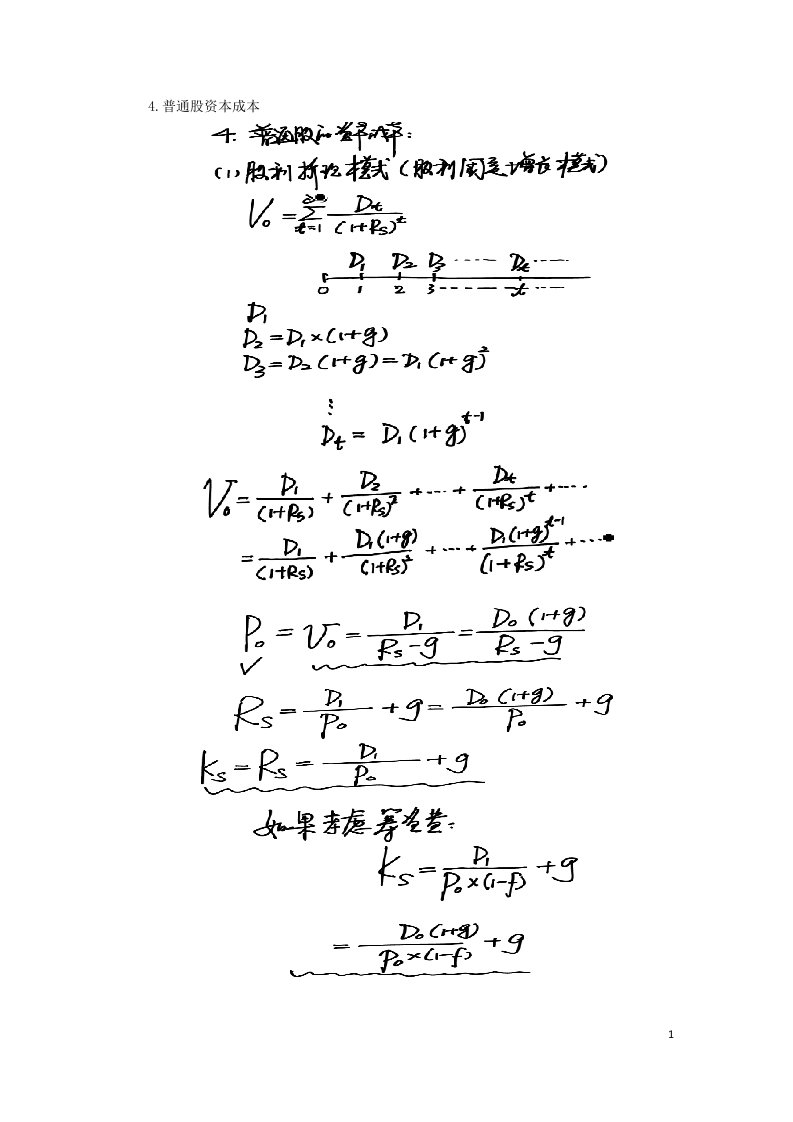 4. 普通股资本成本
4. 普通股的资本成本：
(1) 股利折现模式（股利固定增长模式）
V₀ = ∑_{t=1}^{∞} D_t / (1+R_s)^t
D₁ D₂ D₃ ····· D_t ·····
0 1 2 3 ------ t -----
D₁
D₂ = D₁ × (1+g)
D₃ = D₂ (1+g) = D₁ (1+g)²
⋮
D_t = D₁ (1+g)^{t-1}
V₀ = D₁ / (1+R_s) + D₂ / (1+R_s)² + ··· + D_t / (1+R_s)^t + ····
= D₁ / (1+R_s) + D₁(1+g) / (1+R_s)² + ··· + D₁(1+g)^{t-1} / (1+R_s)^t + ····
P₀ = V₀ = D₁ / (R_s - g) = D₀ (1+g) / (R_s - g)
✓
R_s = D₁ / P₀ + g = D₀ (1+g) / P₀ + g
K_s = R_s = D₁ / P₀ + g
如果考虑筹资费：
K_s = D₁ / (P₀ × (1-f)) + g
= D₀ (1+g) / (P₀ × (1-f)) + g
1